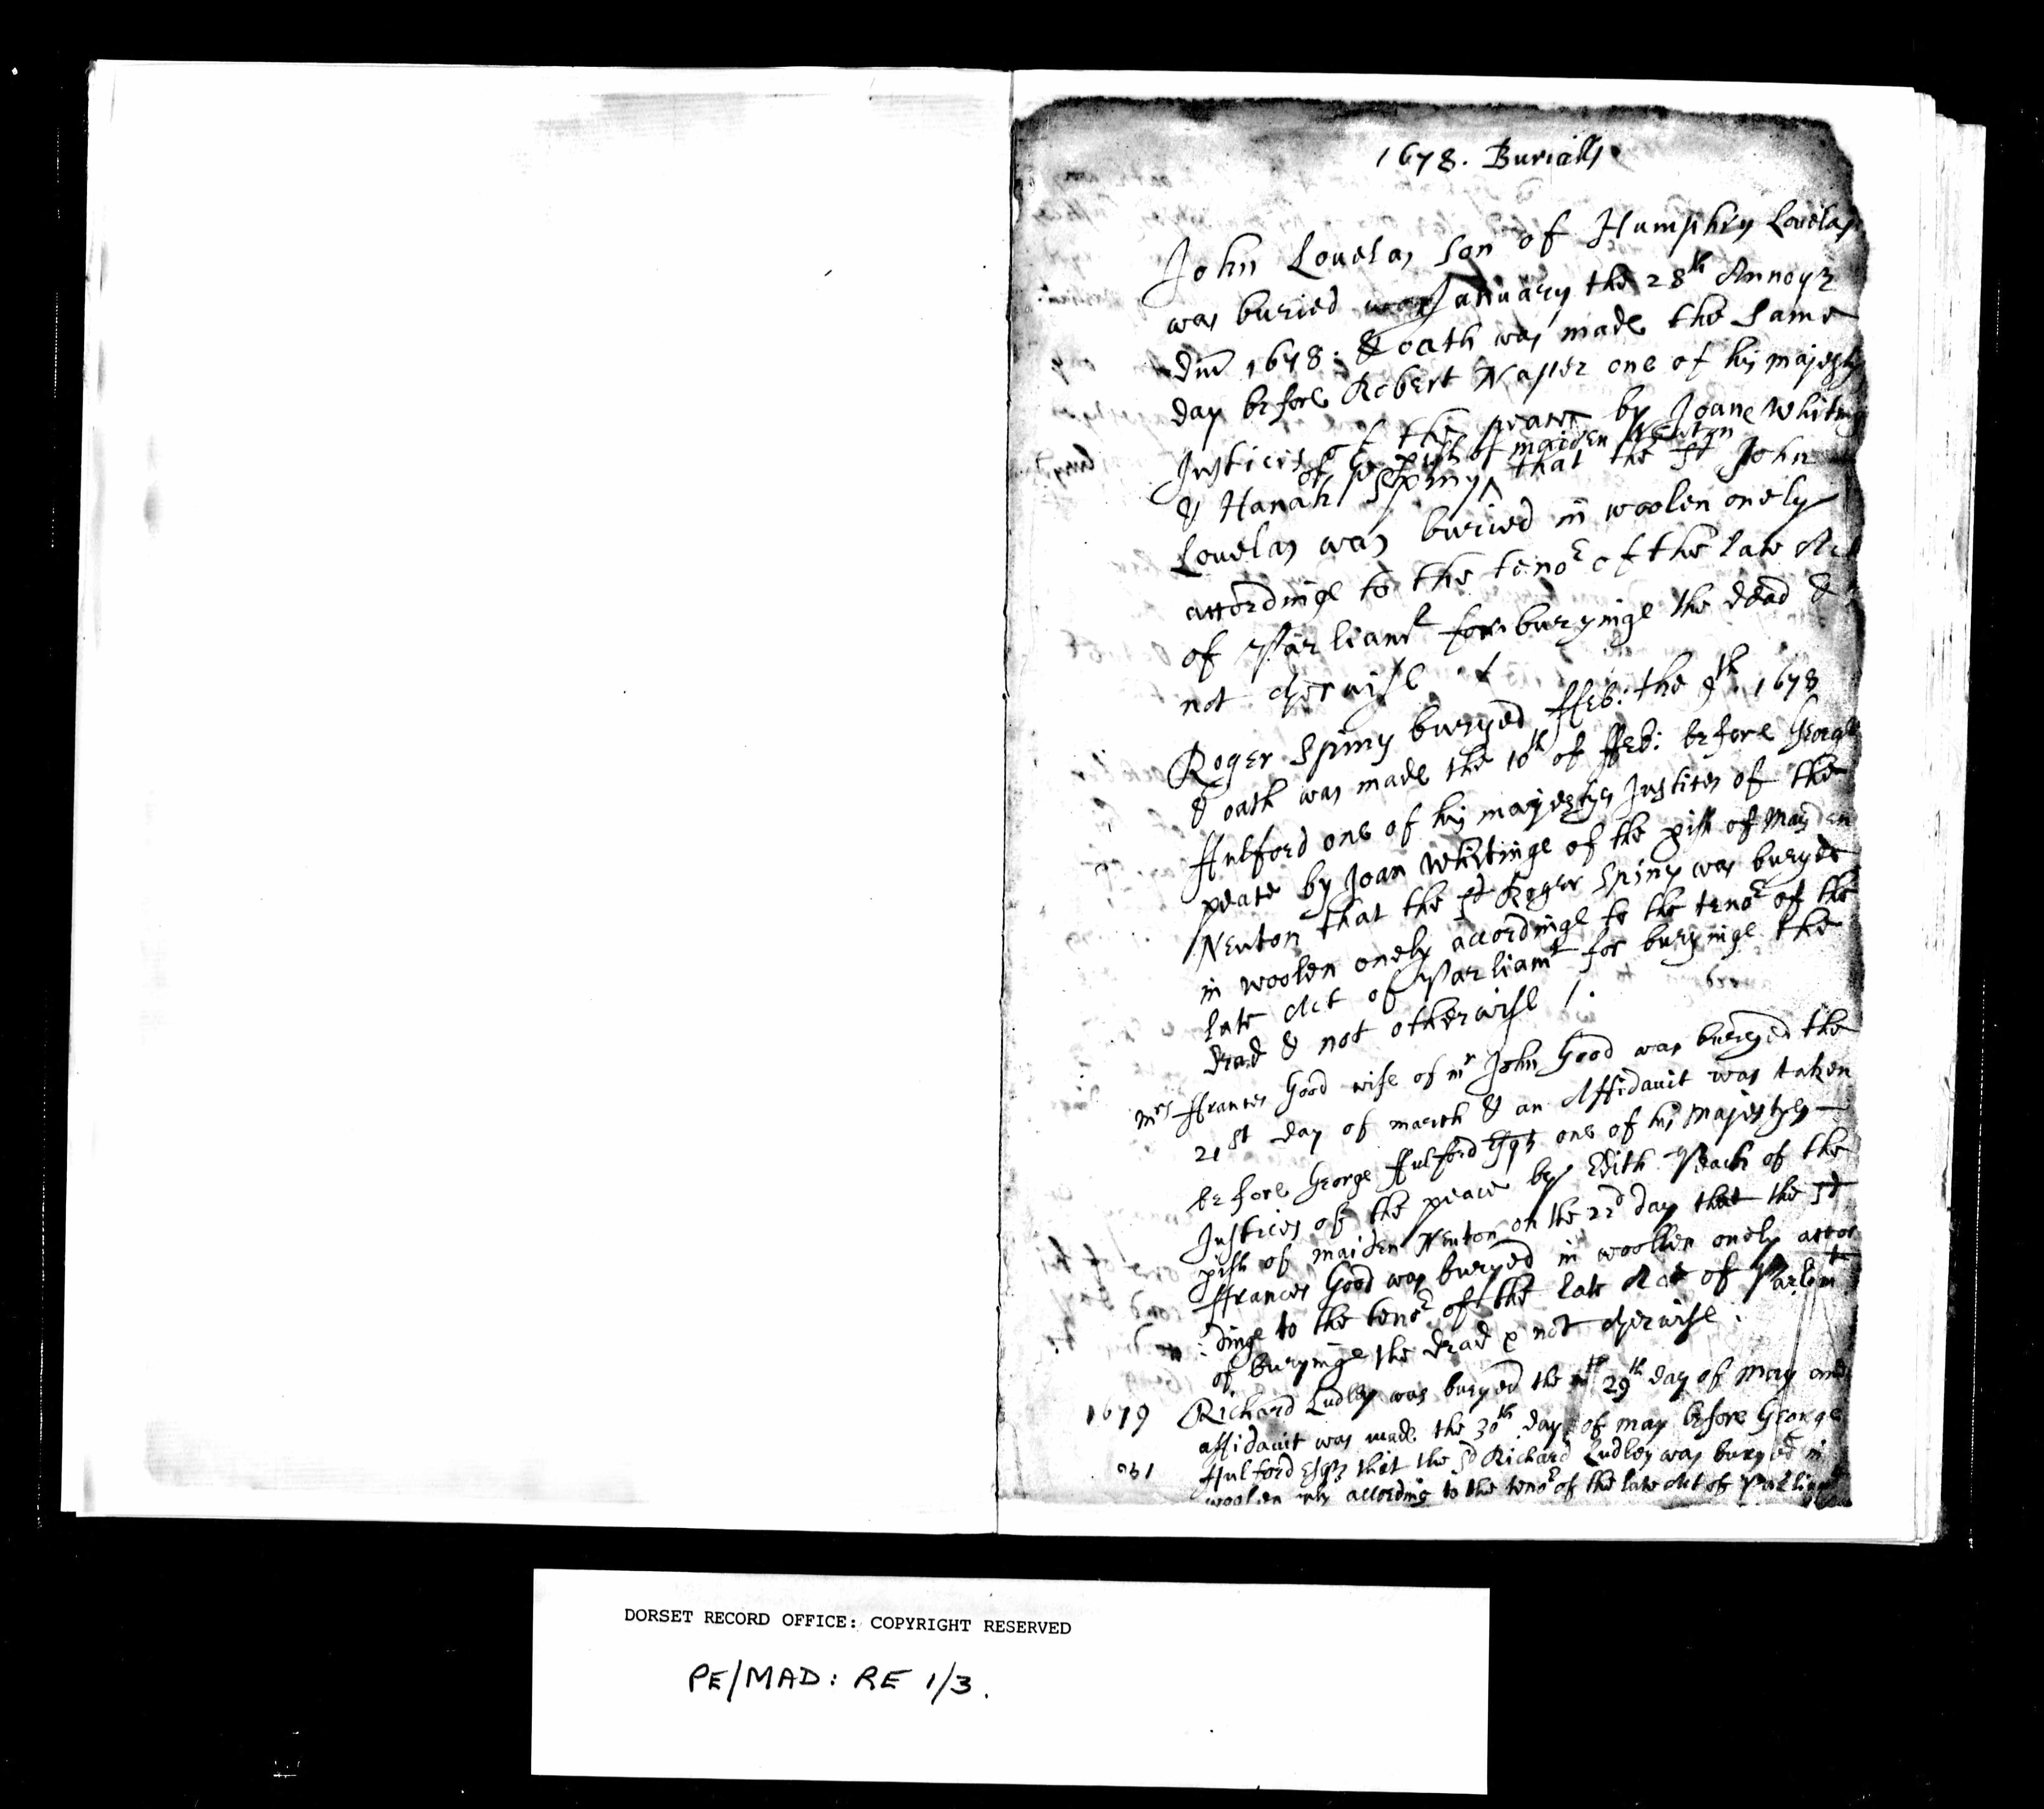 1678. Burialls
John Louelas son of Humphry Louelas
was buried January the 28th Annoq3
dm 1678: & oath was made the same
day before Robert Naper one of his majestys
Justices of the peace by Joane Whiting
of the pish of maiden Newton
& Hanah Spiny ^ that the sd John
Louelas was buried in woolen onely
accordinge to the tenor of the late Act
of Parliamt for buryinge the dead &
not otherwise
Roger Spiny buryed ffeb: the 9th 1678
& oath was made the 10th of ffeb: before George
ffulford one of his majestyes Justices of the
peace by Joan Whitinge of the pish of Maiden
Newton that the sd Roger Spiny was buryed
in woolen onely accordinge to the tenor of the
late Act of Parliamt for buryinge the
dead & not otherwise
mrs ffrances Good wife of mr John Good was buryed the
21st day of march & an Affidauit was taken
before George ffulford Esq3 one of his Majestyes
Justices of the peace by Edith Peach of the
pish of maiden Newton on the 22d day that the sd
ffrances Good was buryed in woollen onely accor
:dinge to the tenor of the late Act of Parlemt
of buryinge the dead & not otherwise.
1679 Richard Ludley was buryed the 29th day of May and
affidauit was made the 30th day of may before George
ffulford Esq3 that the sd Richard Ludley was buryed in
woolen only according to the tenor of the late Act of Parliamt
DORSET RECORD OFFICE: COPYRIGHT RESERVED
PE/MAD: RE 1/3.